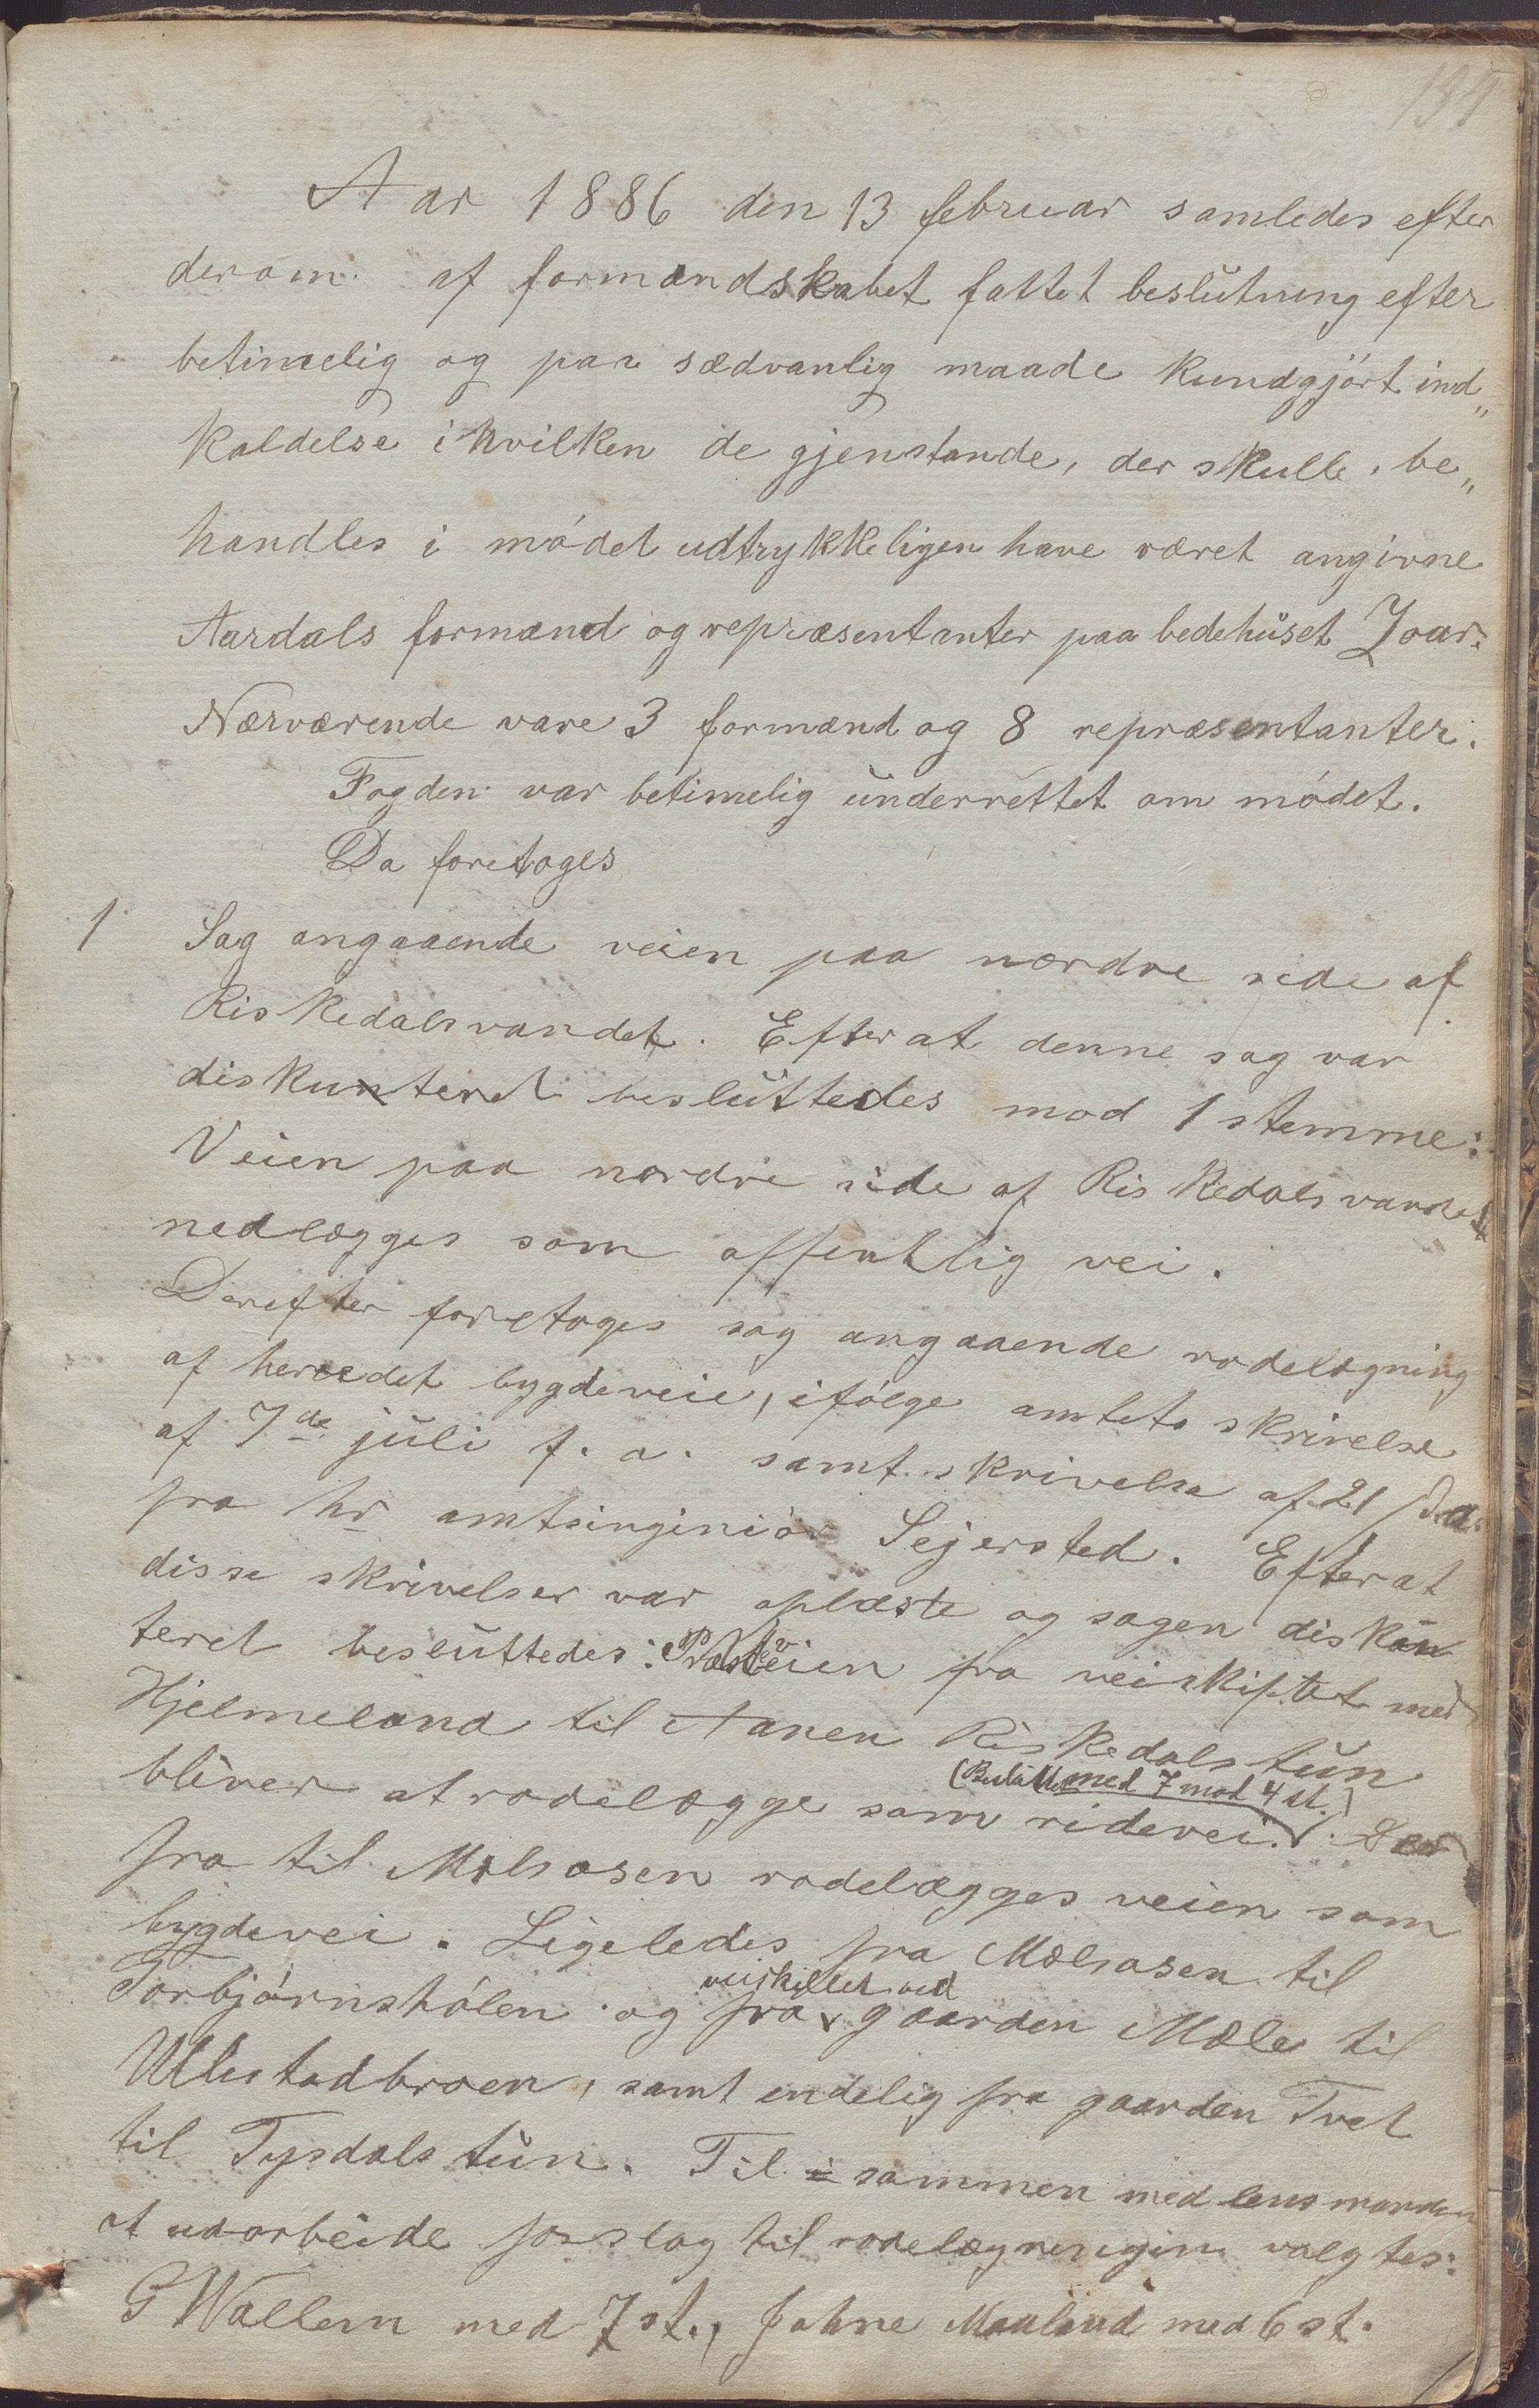 Aar 1886 den 13 februar samledes efter
derom af formandskabet fattet beslutning efter
betimelig og paa sædvanlig maade kundgjört ind„
kaldelse i hvilken de gjenstande, der skulle be„
handles i mödet udtrykkeligen have været angivne
Aardals formænd og repræsentanter paa bedehuset Zoar.
Nærværende vare 3 formænd og 8 repræsentanter.
Fogden var betimelig underrettet om mödet.
Da foretoges
1 Sag angaaende veien paa nordre side af
Riskedalsvandet. Efter at denne sag var
diskuteret besluttedes mod 1 stemme:
Veien paa nordre side af Riskedalsvandet
nedlægges som offentlig vei.
Derefter foretoges sag angaaende rodelægning
af herredet bygdeveie, ifölge amtets skrivelse
af 7de juli f. a. samt skrivelse af 21
fra hr amtsinginiör Sejersted. Efter at
disse skrivelser var oplæste og sagen disku
teret besluttedes: Postveien fra veiskiftet med
Hjelmeland til Aanen Riskedals tun
(Besluttet med 7 mod 4 st.)
bliver at rodelægge som ridevei. Der
fra til Mælsosen rodelægges veien som
bygdevei. Ligeledes fra Mælsosen til
veiskillet ved
Torbjörnshölen og fra gaarden Mæle til
Ullestadbroen, samt endelig fra gaarden Tvet
til Tysdals tun. Til sammen med lensmanden
at udarbeide forslag til rodelægningen valgtes:
G Wallem med 7 st., Johne Mauland med 6 st.